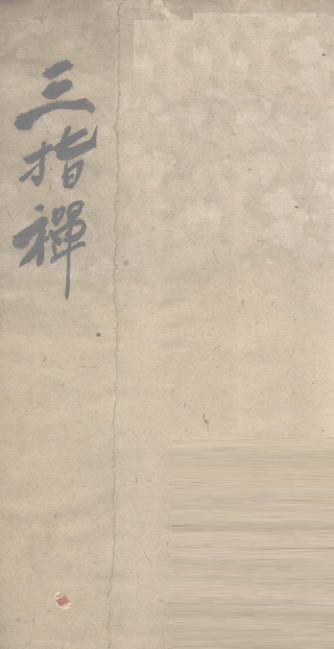 三指禪